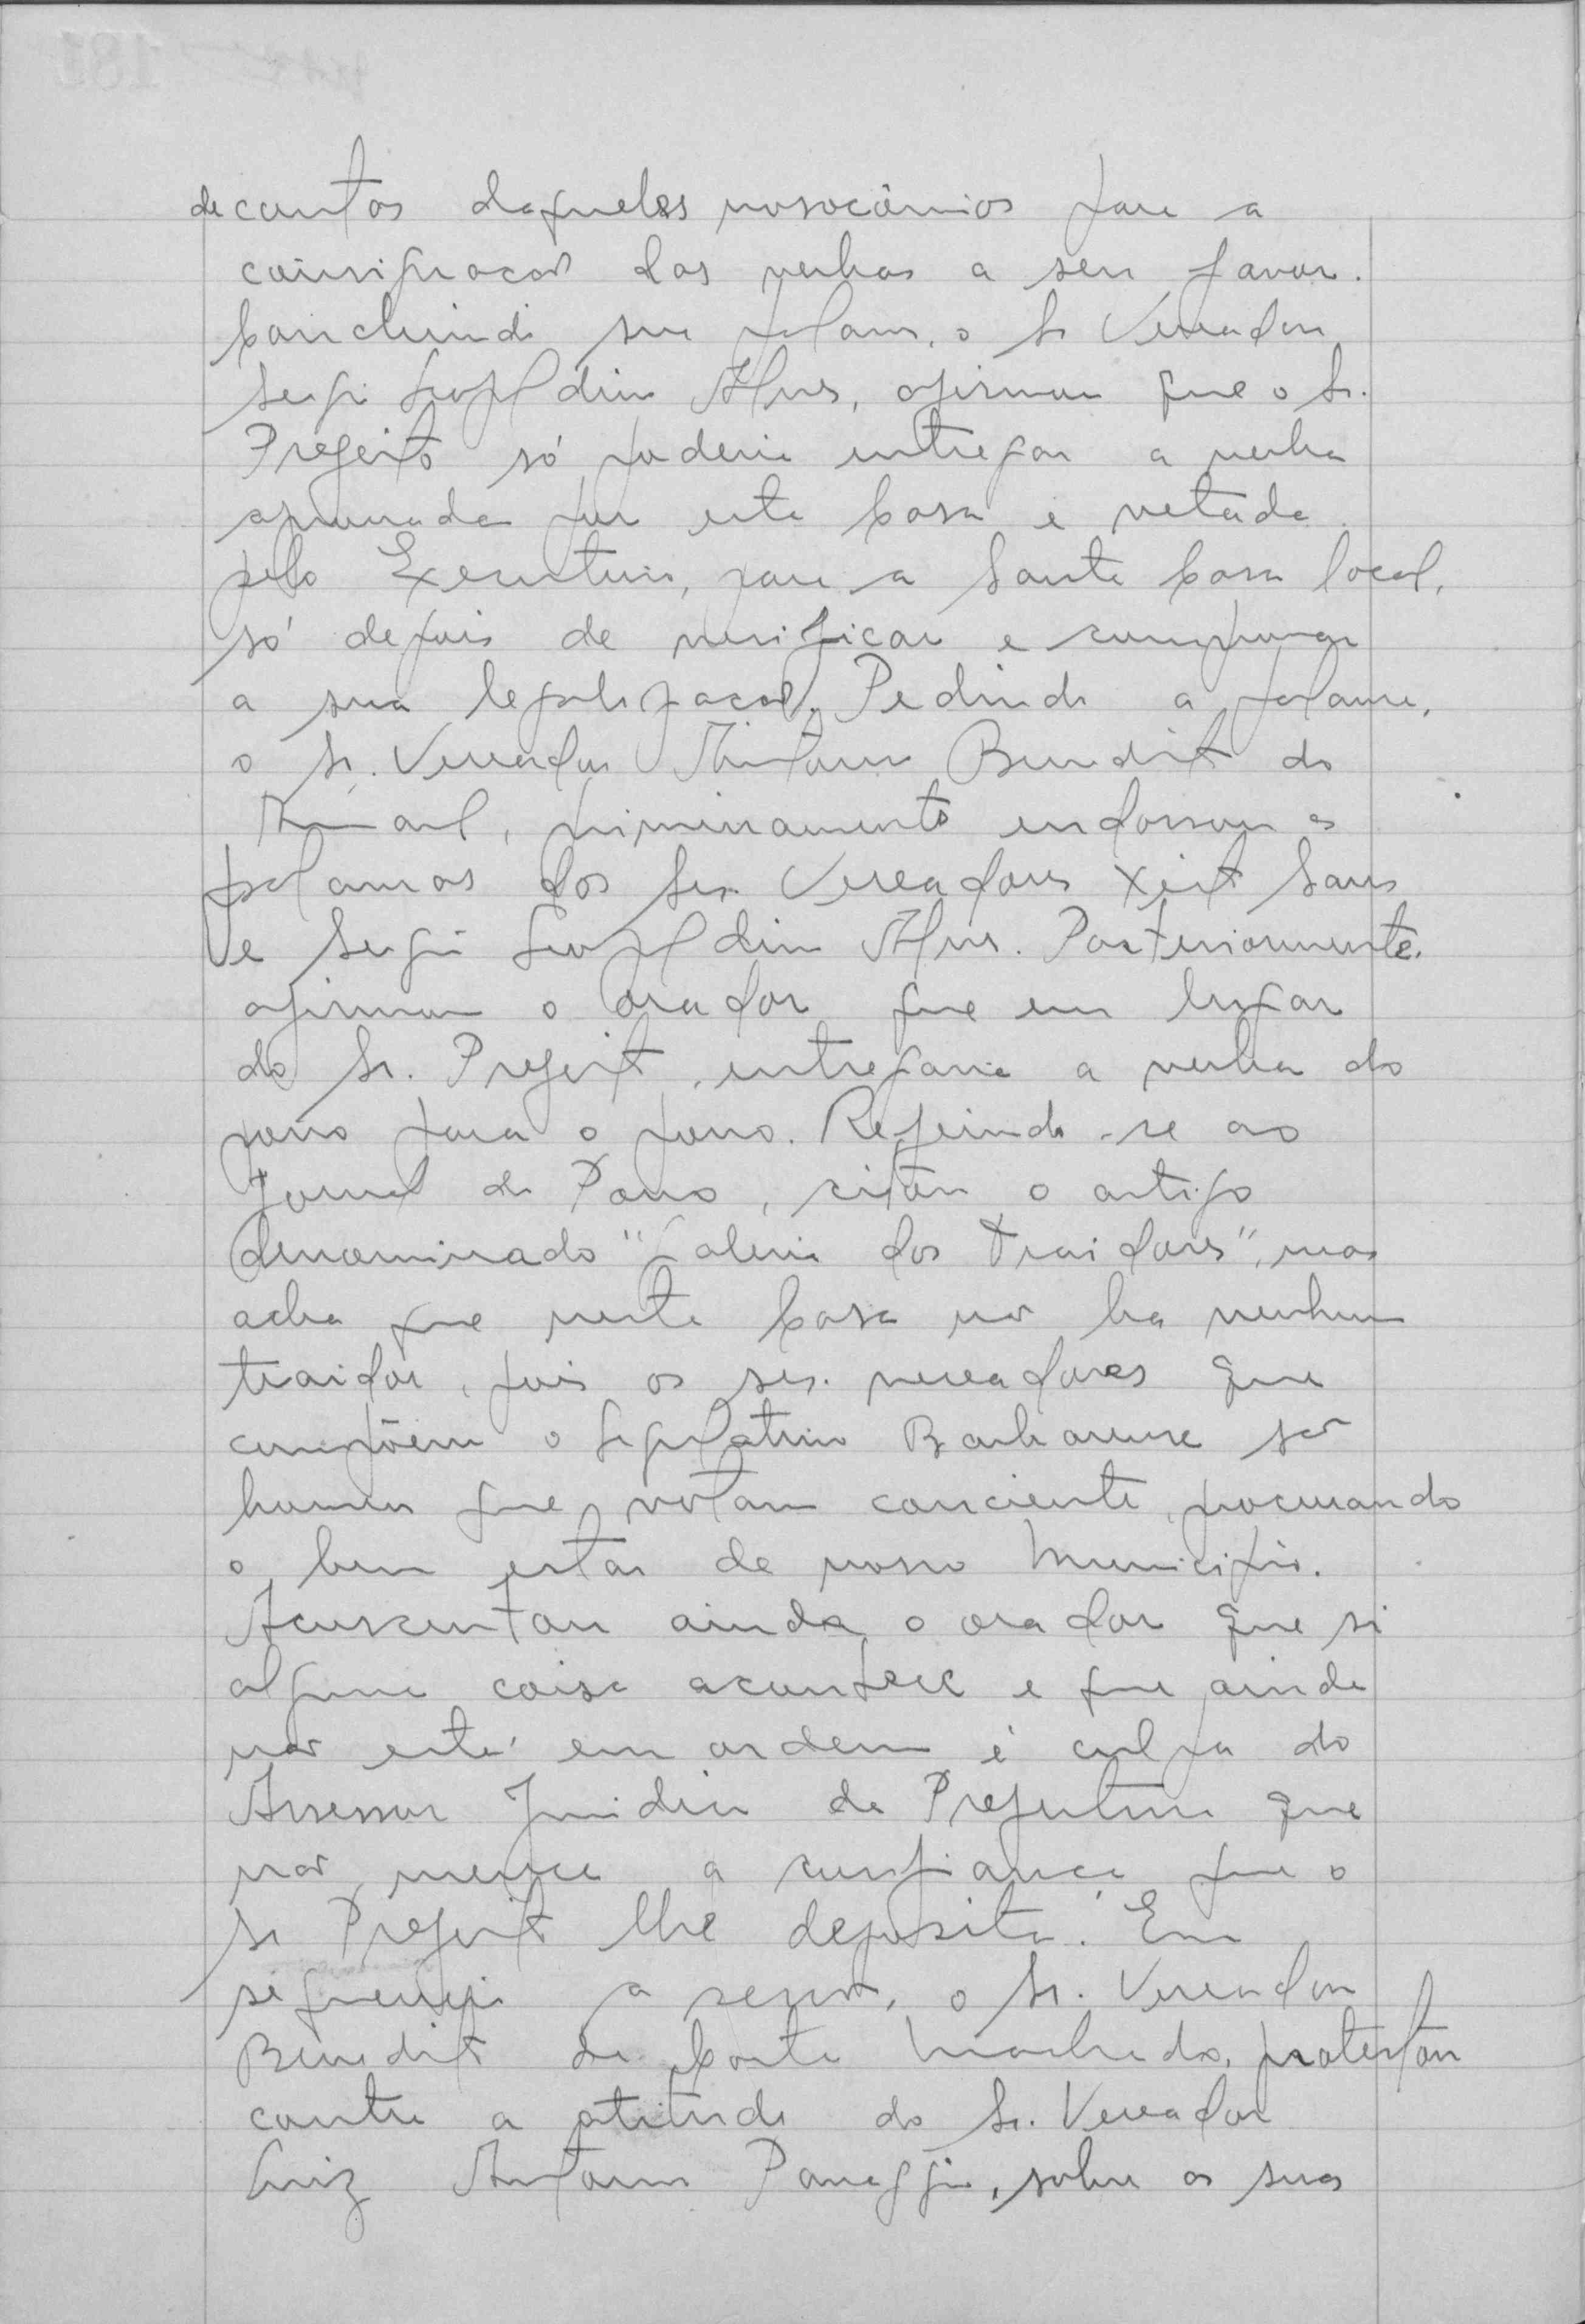 de contas daqueles nosocômios para a
consignacão das verbas a seu favor.
Concluindo sua palavra, o Sr Vereador
Sergio Leopoldino Alves, afirmou que o Sr.
Prefeito só poderia entregar a verba
aprovada por esta Casa e vetada
pelo Executivo, para a Santa Casa local,
só depois de verificar e comprovar
a sua legalização. Pedindo a palavra,
o Sr. Vereador Antonio Benedito do
Amaral, primeiramente endossou as
palavras dos Srs. Vereadores Xisto
e Sergio Leopoldino Alves. Posteriormente,
afirmou o orador que em lugar
do Sr. Prefeito, entregaria a verba do
povo para o povo. Referindo-se ao
Jornal do Povo, citou o artigo
denominado "Galeria dos Traidores", mas
acha que nesta Casa não ha nenhum
traidor, pois os srs. vereadores que
compõem o Legislativo Barbarense são
homens que votam conciente, procurando
o bem estar de nosso Municipio.
Acrescentou ainda o orador que si
alguma coisa acontece e que ainda
não está em ordem é culpa do
Assessor Juridico da Prefeitura que
não merece a confiança que o
Sr Prefeito lhe deposita. Em
sequencia a sessão, o Sr. Vereador
Benedito da Costa Machado, protestou
contra a atitude do Sr. Vereador
Luiz Antonio Panaggio, sobre as suas